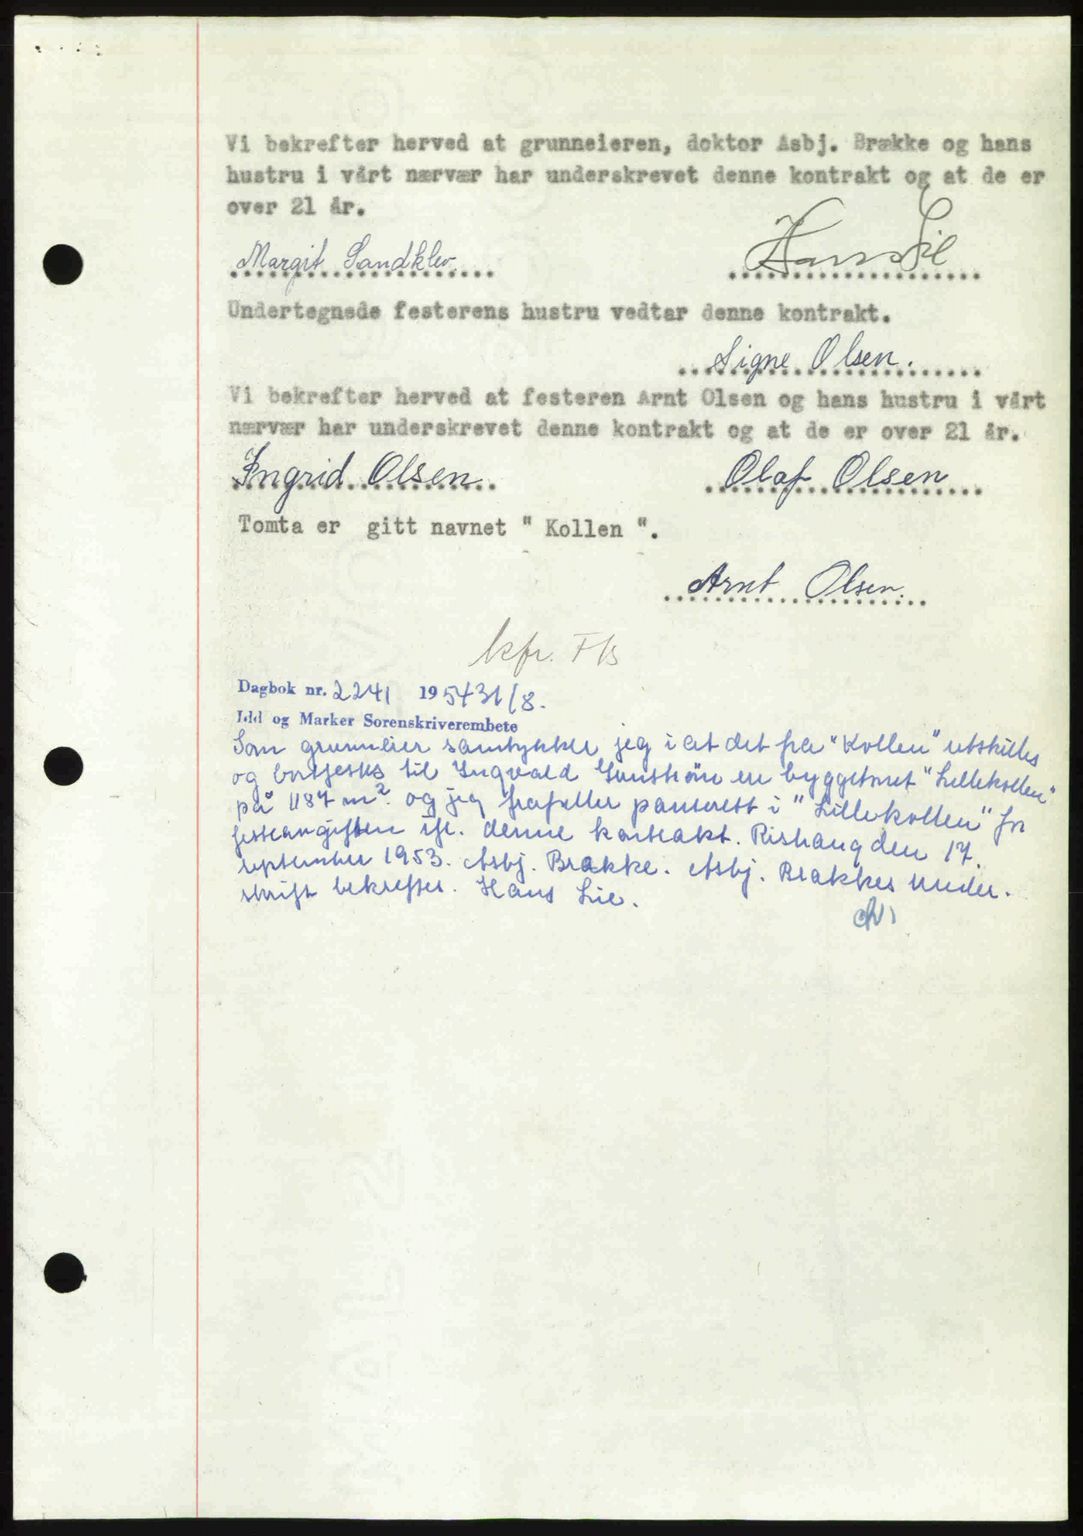 Vi bekrefter herved at grunneieren, doktor Asbj. Brække og hans
hustru i vårt nærvær har underskrevet denne kontrakt og at de er
over 21 år.
Margit Sandklev Hans Lie
Undertegnede festerens hustru vedtar denne kontrakt.
Signe Olsen.
Vi bekrefter herved at festeren Arnt Olsen og hans hustru i vårt
nærvær har underskrevet denne kontrakt og at de er over 21 år.
Ingrid Olsen. Olaf Olsen
Tomta er gitt navnet " Kollen ".
Arnt Olsen.
kfr.
Dagbok nr. 2241 1954 31/8.
Idd og Marker Sorenskriverembete
Som grunneier samtykker jeg i at det fra "Kollen" utskilles
og bortfestes til Ingvald en byggetomt "Lillekollen"
på 1187 m². og jeg frafaller panterett i "Lillekollen" for
festeavgiften ifl. denne kontrakt. Rishaug den 17.
september 1953. Asbj. Brække. Asbj. Brækkes under-
skrift bekreftes. Hans Lie.